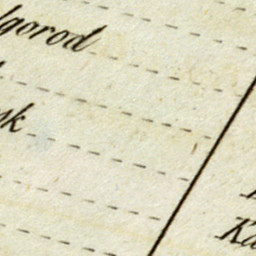 lgorod
sk
Ka